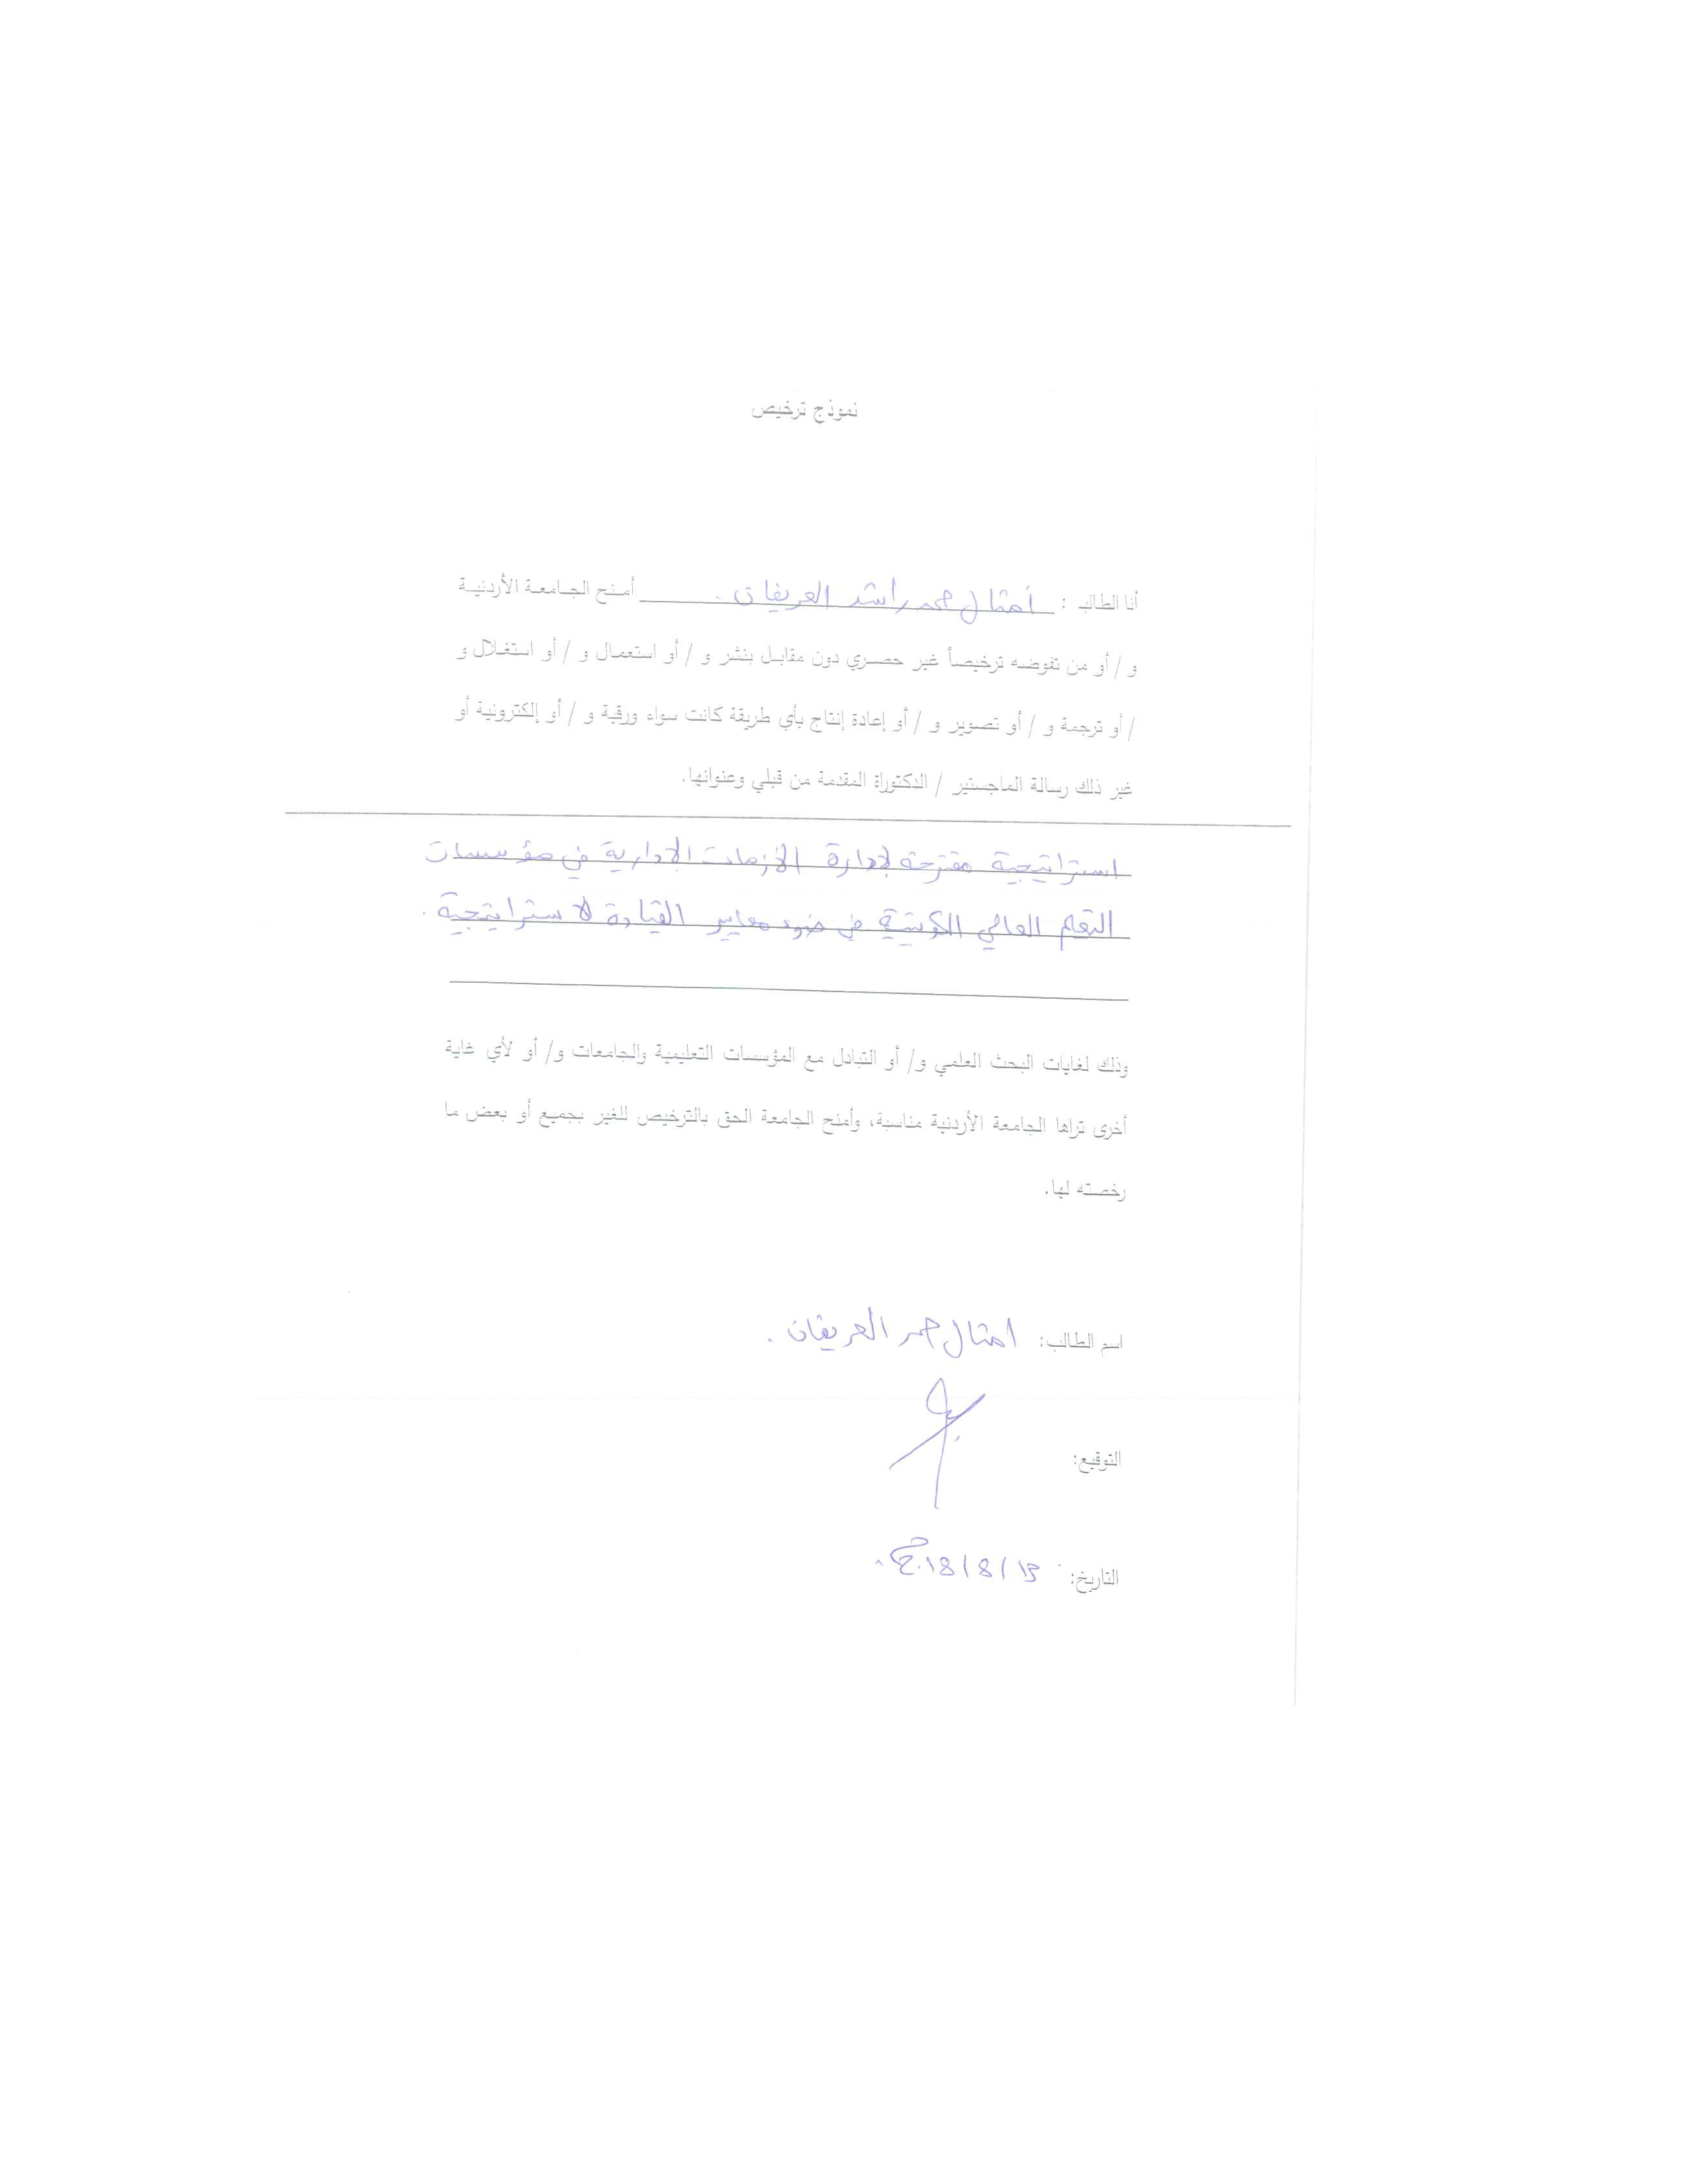 نموذج ترخيص
أنا الطالب : أمثال حمد راشد العريفان . أمنح الجامعة الأردنية
و / أو من تفوضه ترخيصاً غير حصري دون مقابل بنشر و / أو استعمال و / أو استغلال و
/ أو ترجمة و / أو تصوير و / أو إعادة إنتاج بأي طريقة كانت سواء ورقية و / أو إلكترونية أو
غير ذلك رسالة الماجستير / الدكتوراة المقدمة من قبلي وعنوانها.
استراتيجية مقترحة لإدارة الأزمات الإدارية في مؤسسات
التعليم العالي الكويتية في ضوء معايير القيادة الاستراتيجية .
وذلك لغايات البحث العلمي و/ أو التبادل مع المؤسسات التعليمية والجامعات و/ أو لأي غاية
أخرى تراها الجامعة الأردنية مناسبة، وأمنح الجامعة الحق بالترخيص للغير بجميع أو بعض ما
رخصته لها.
اسم الطالب: امثال حمد العريفان .
التوقيع:
التاريخ: